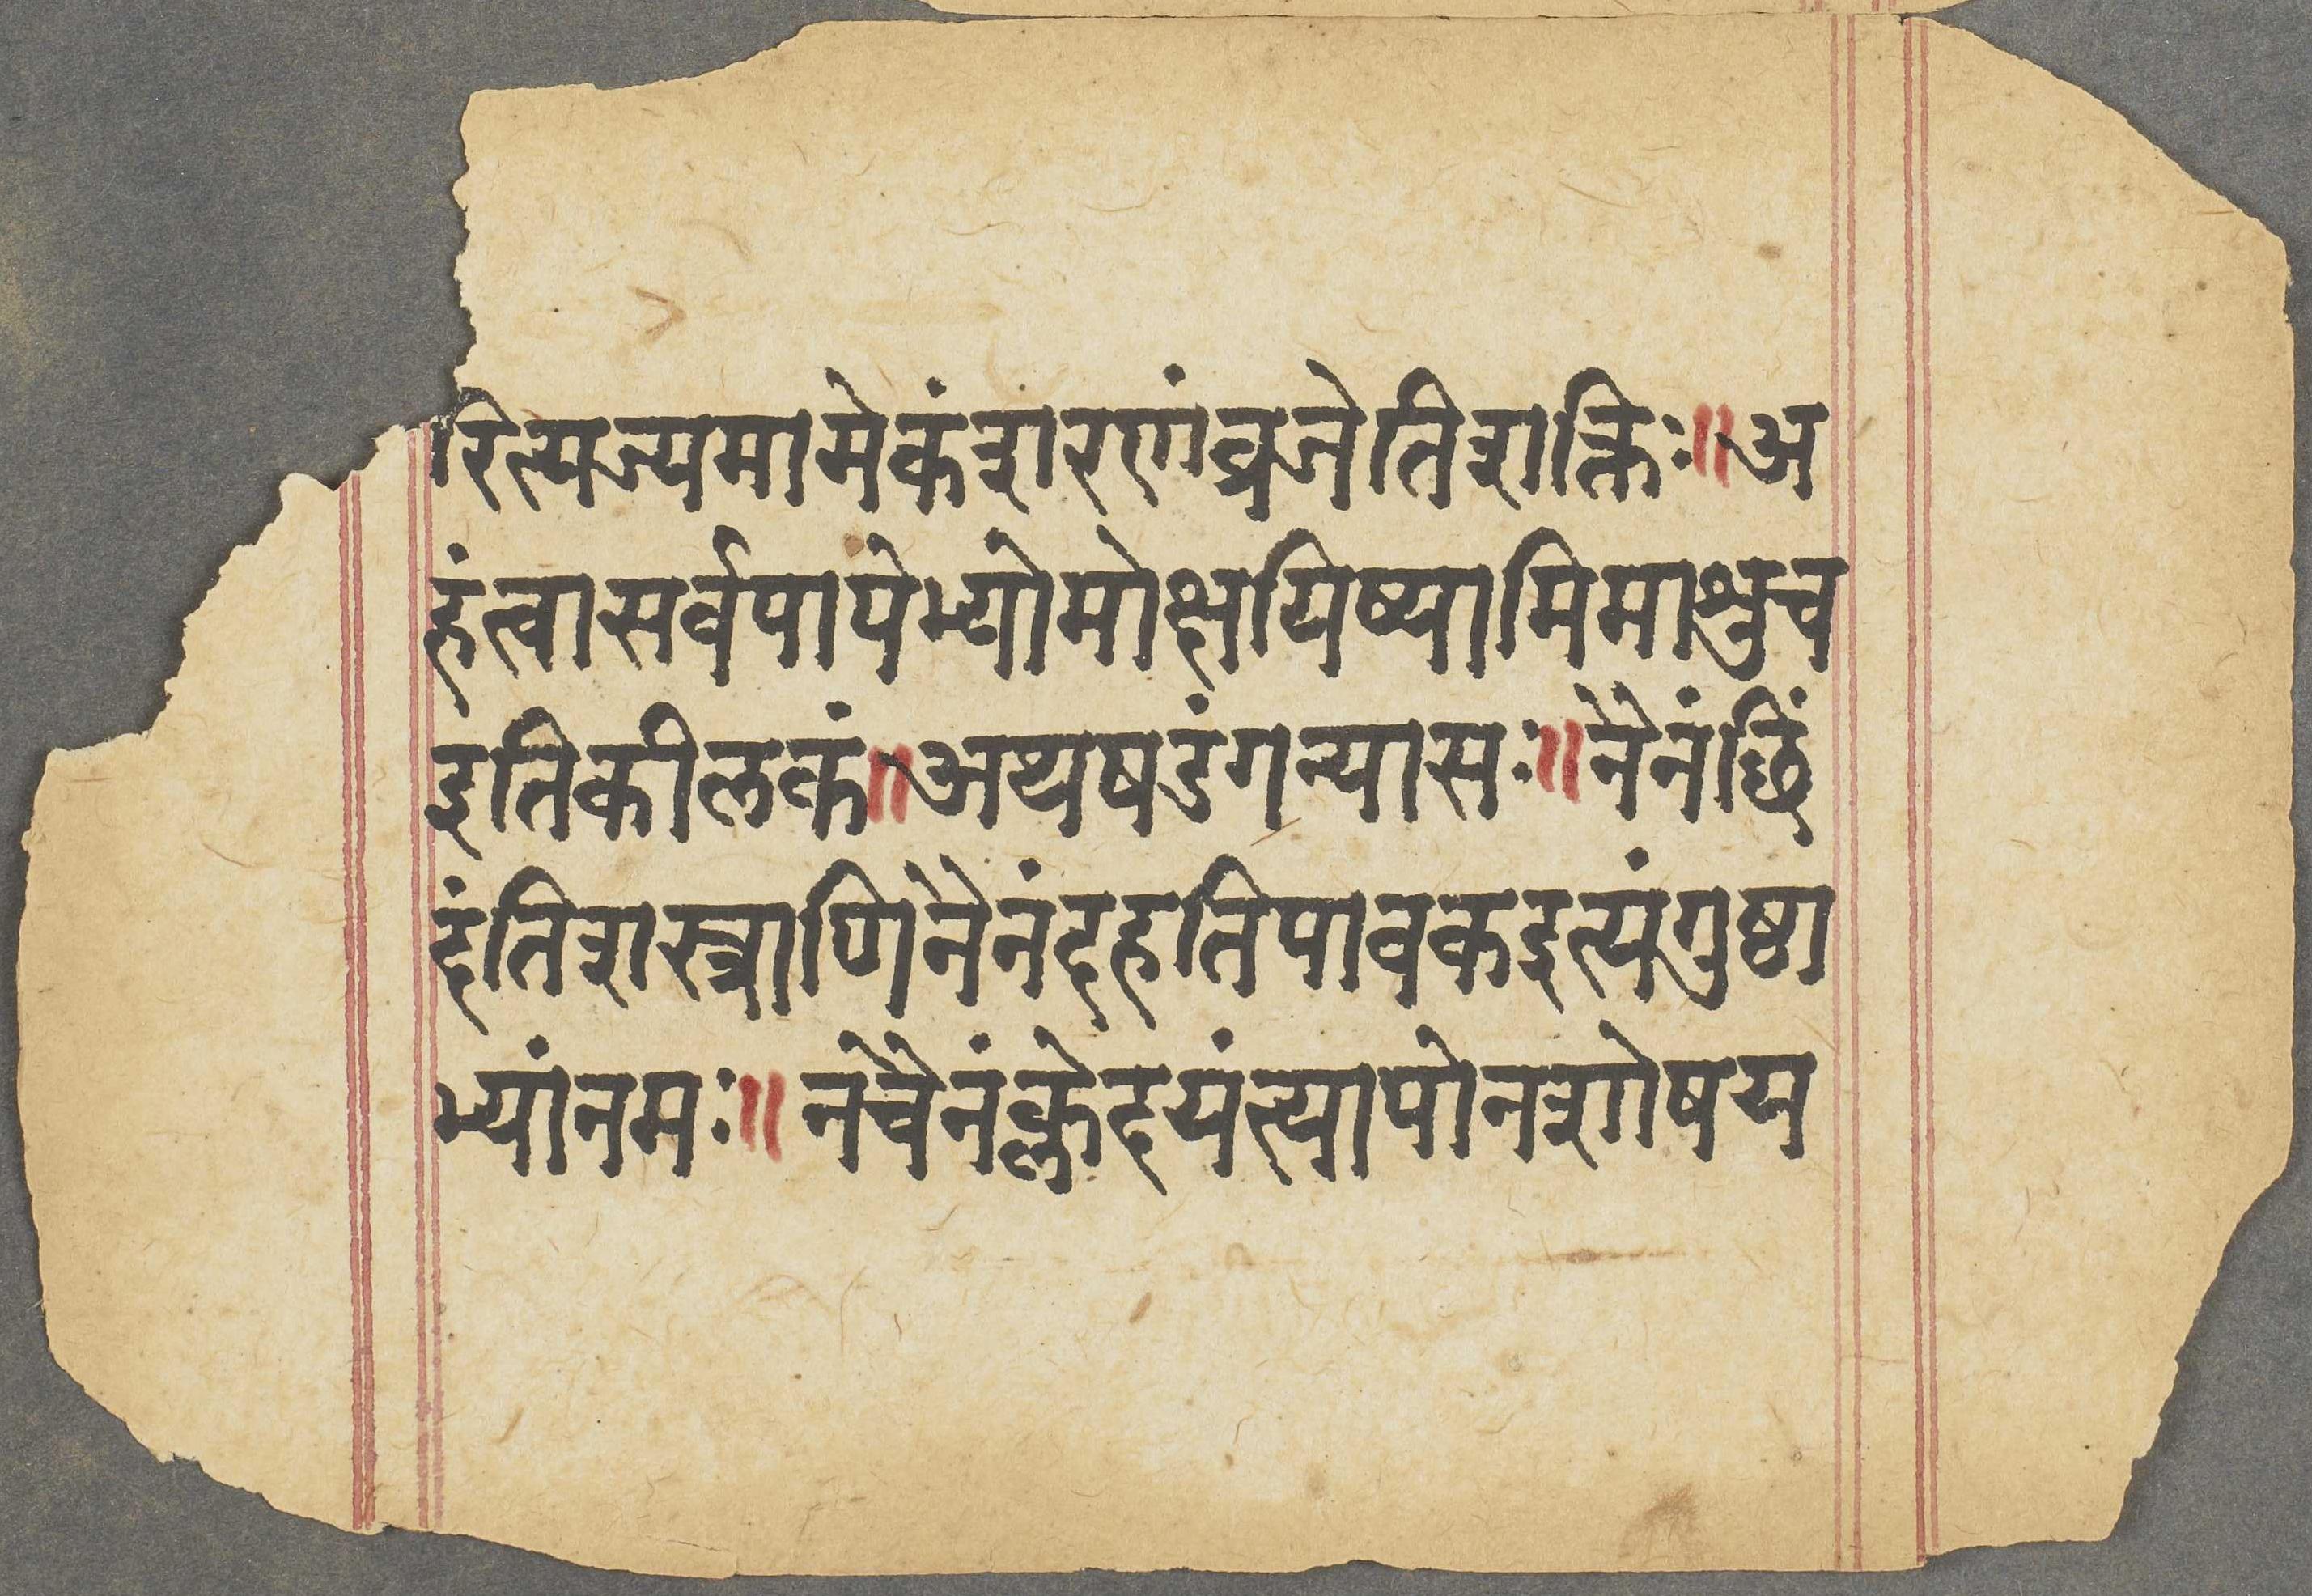 रित्यज्यमामेकंशरणंव्रजेतिशक्तिः॥अ
हंत्वासर्वपापेभ्योमोक्षयिष्यामिमाशुच
इतिकीलकं॥अथषडंगन्यासः॥नैनंछिं
दंतिशस्त्राणिनैनंदहतिपावकइत्यंगुष्ठा
भ्यांनमः॥नचैनंक्लेदयंत्यापोनशोषय